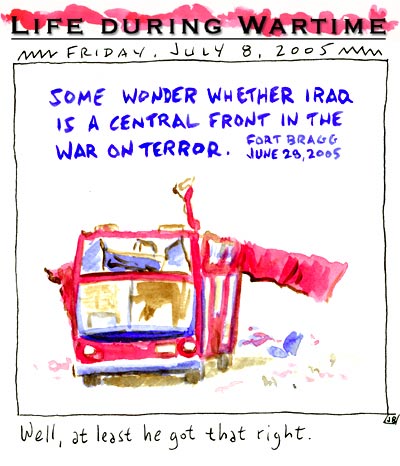 LIFE DURING WARTIME
FRIDAY, JULY 8, 2005
SOME WONDER WHETHER IRAQ
IS A CENTRAL FRONT IN THE
WAR ON TERROR.
FORT BRAGG
JUNE 28, 2005
JB
Well, at least he got that right.